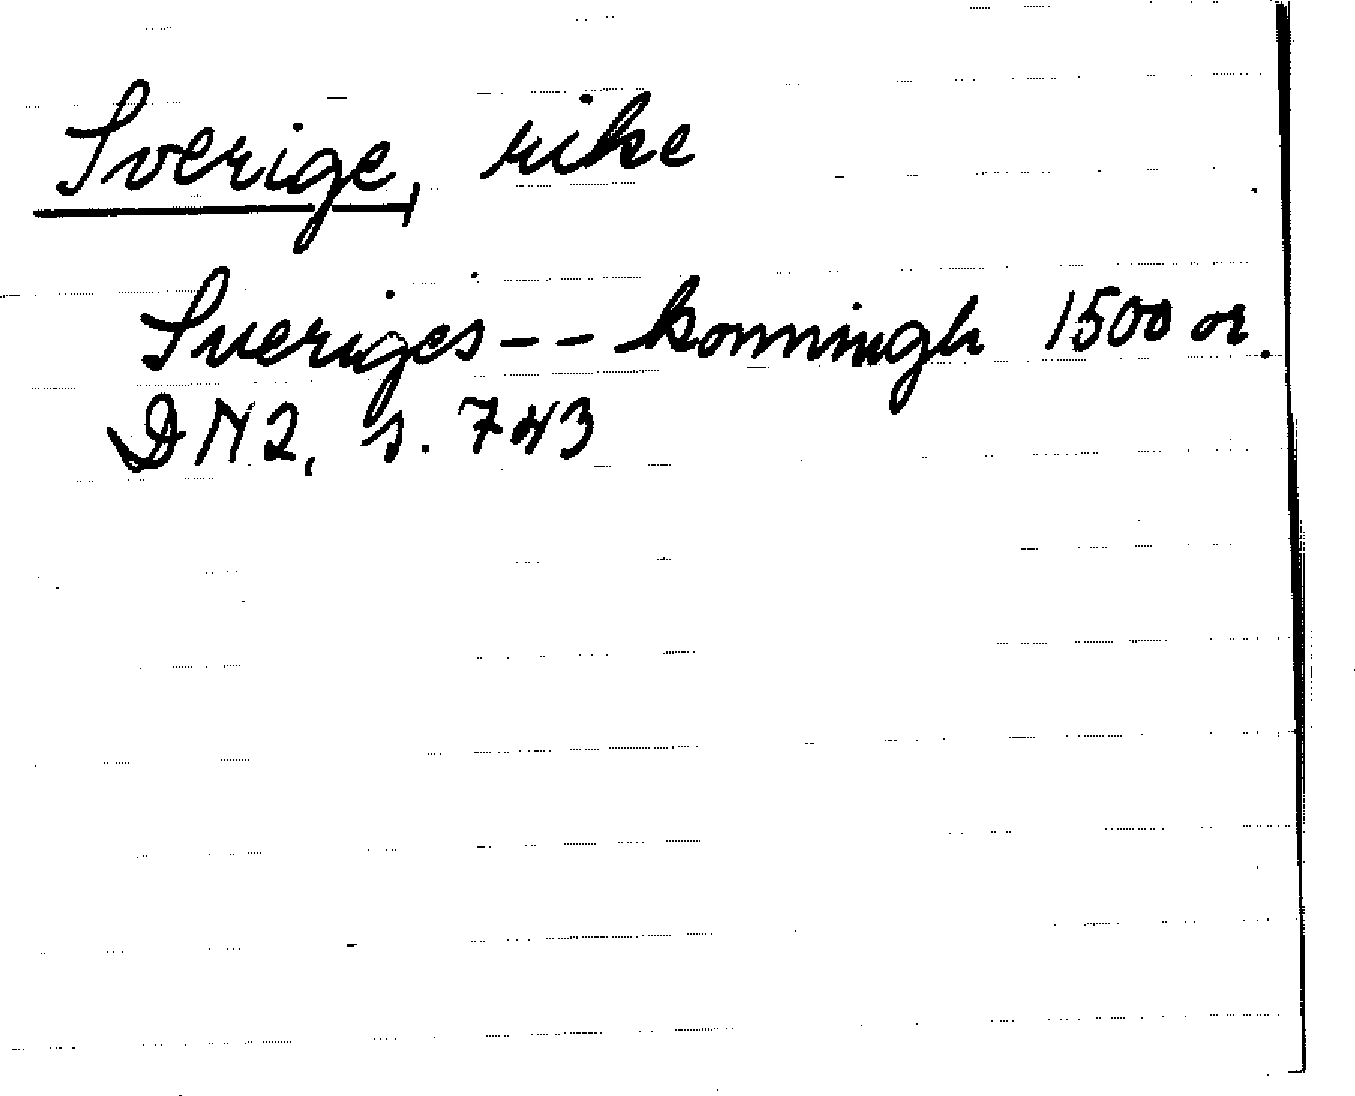 Sverige, rike
Sueriges -- konningh 1500 or.
DN2, s. 743